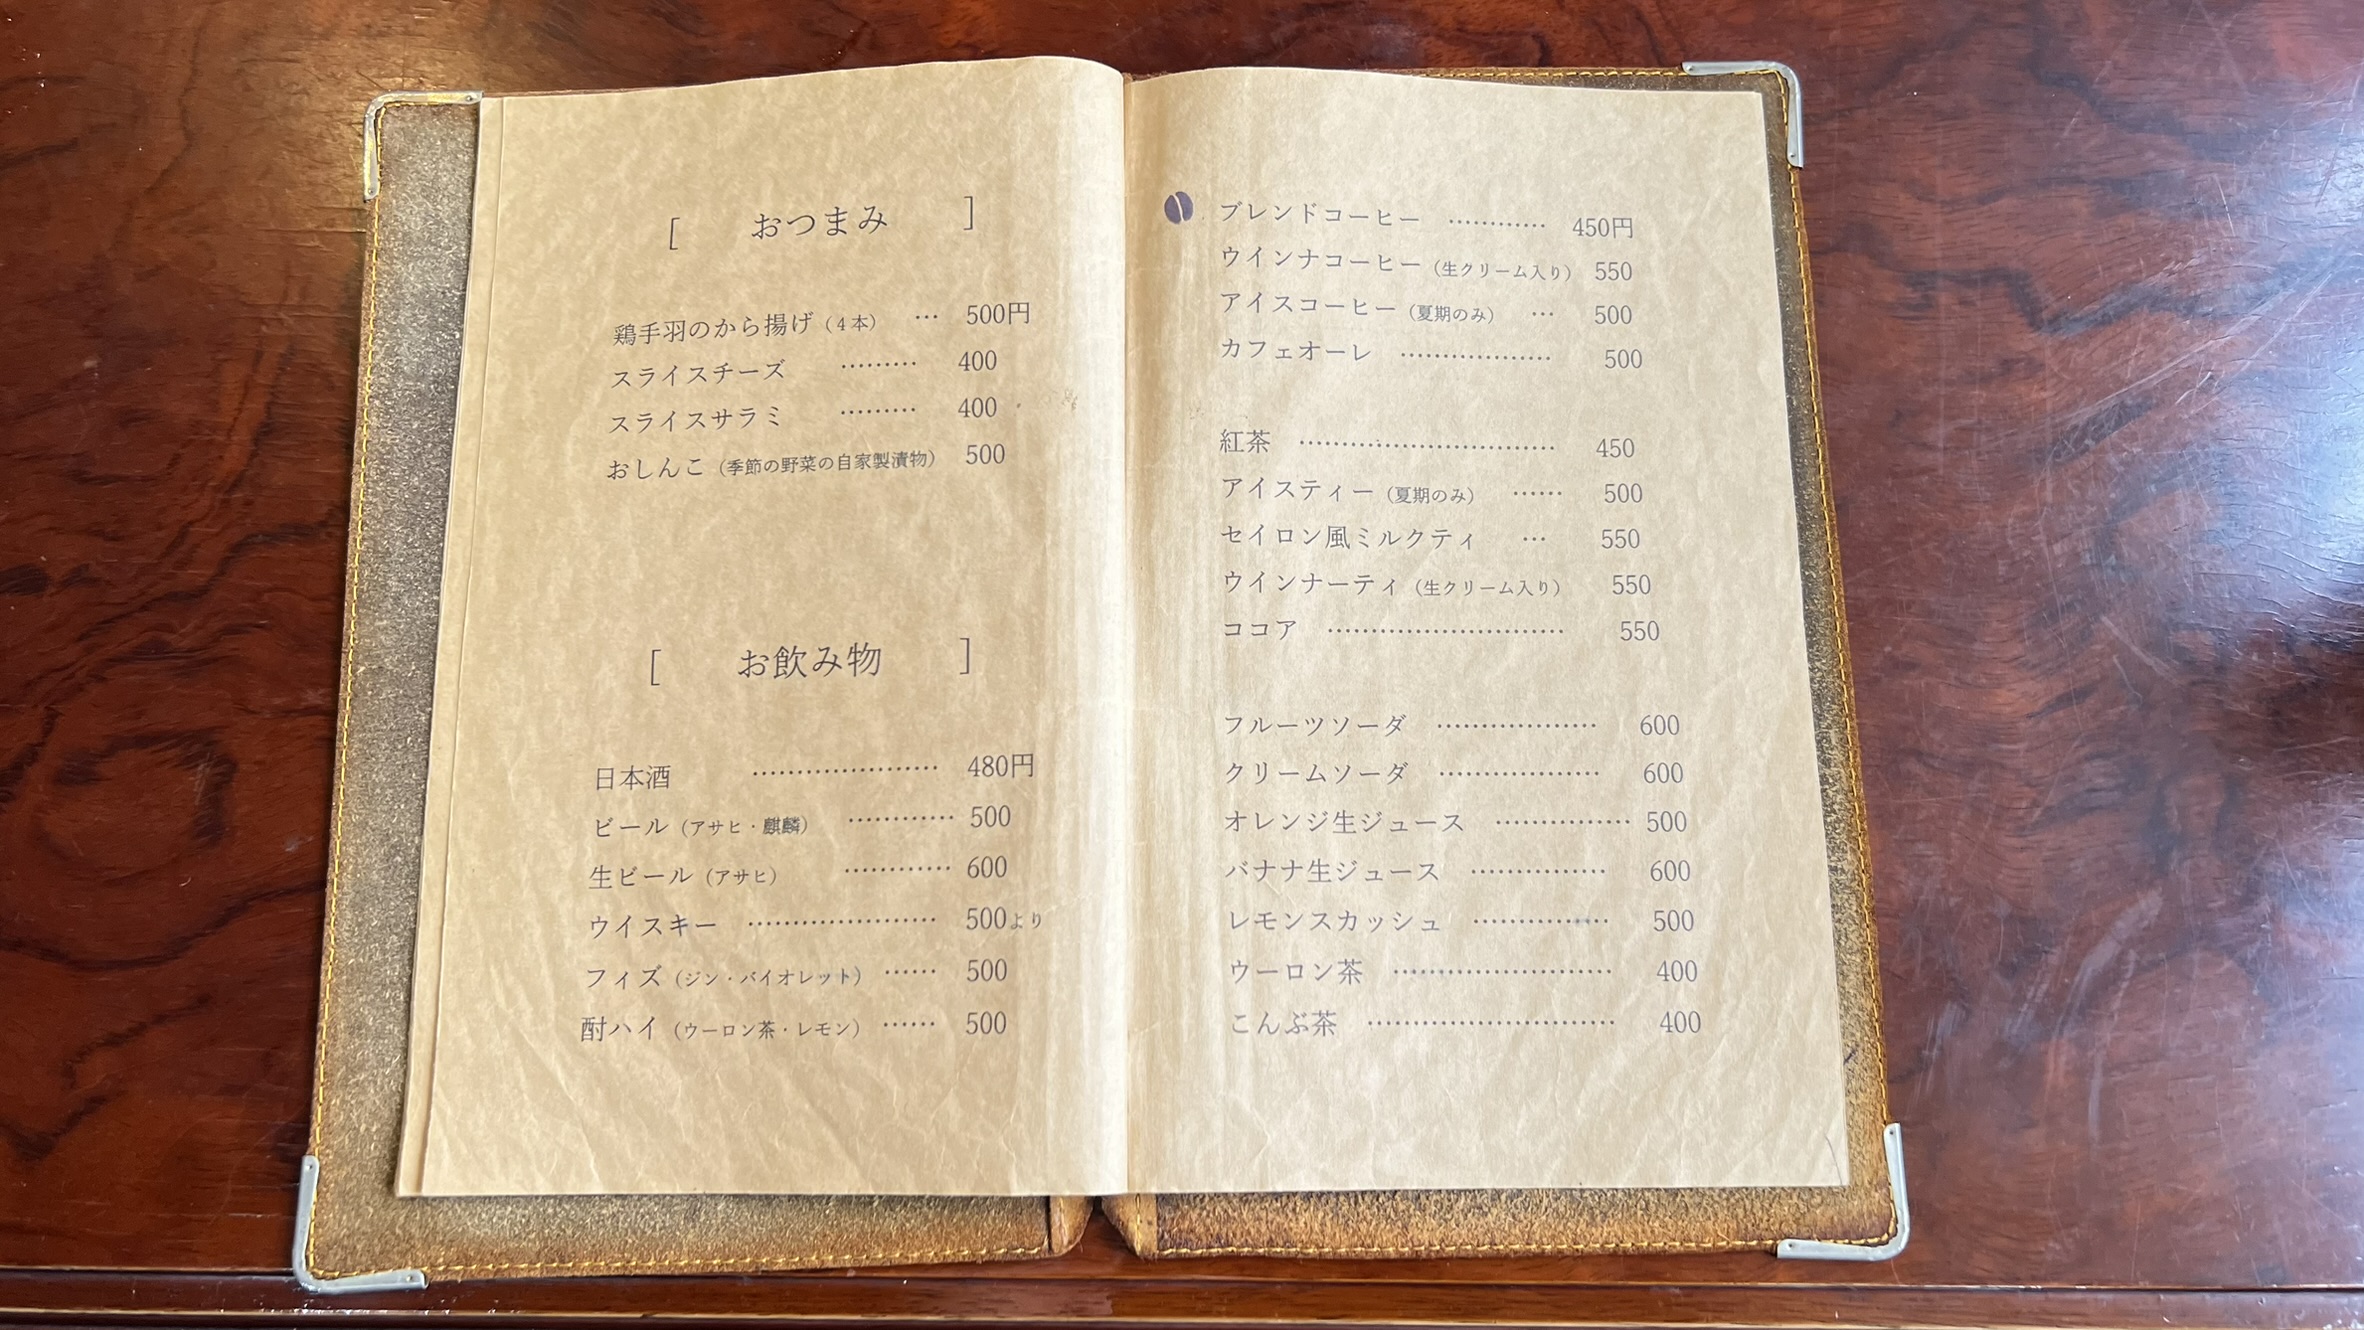 [ おつまみ ]
鶏手羽のから揚げ（4本） … 500円
スライスチーズ ……… 400
スライスサラミ ……… 400
おしんこ（季節の野菜の自家製漬物） 500
[ お飲み物 ]
日本酒 ………………… 480円
ビール（アサヒ・麒麟） ………… 500
生ビール（アサヒ） ………… 600
ウイスキー ………………… 500より
フィズ（ジン・バイオレット） …… 500
酎ハイ（ウーロン茶・レモン） …… 500
ブレンドコーヒー ………… 450円
ウインナコーヒー（生クリーム入り） 550
アイスコーヒー（夏期のみ） … 500
カフェオーレ ……………… 500
紅茶 ………………………… 450
アイスティー（夏期のみ） …… 500
セイロン風ミルクティ … 550
ウインナーティ（生クリーム入り） 550
ココア ……………………… 550
フルーツソーダ ……………… 600
クリームソーダ ……………… 600
オレンジ生ジュース …………… 500
バナナ生ジュース …………… 600
レモンスカッシュ …………… 500
ウーロン茶 …………………… 400
こんぶ茶 ……………………… 400